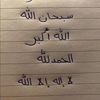 سبحان الله
الله أكبر
الحمد لله
لا إله إلا الله